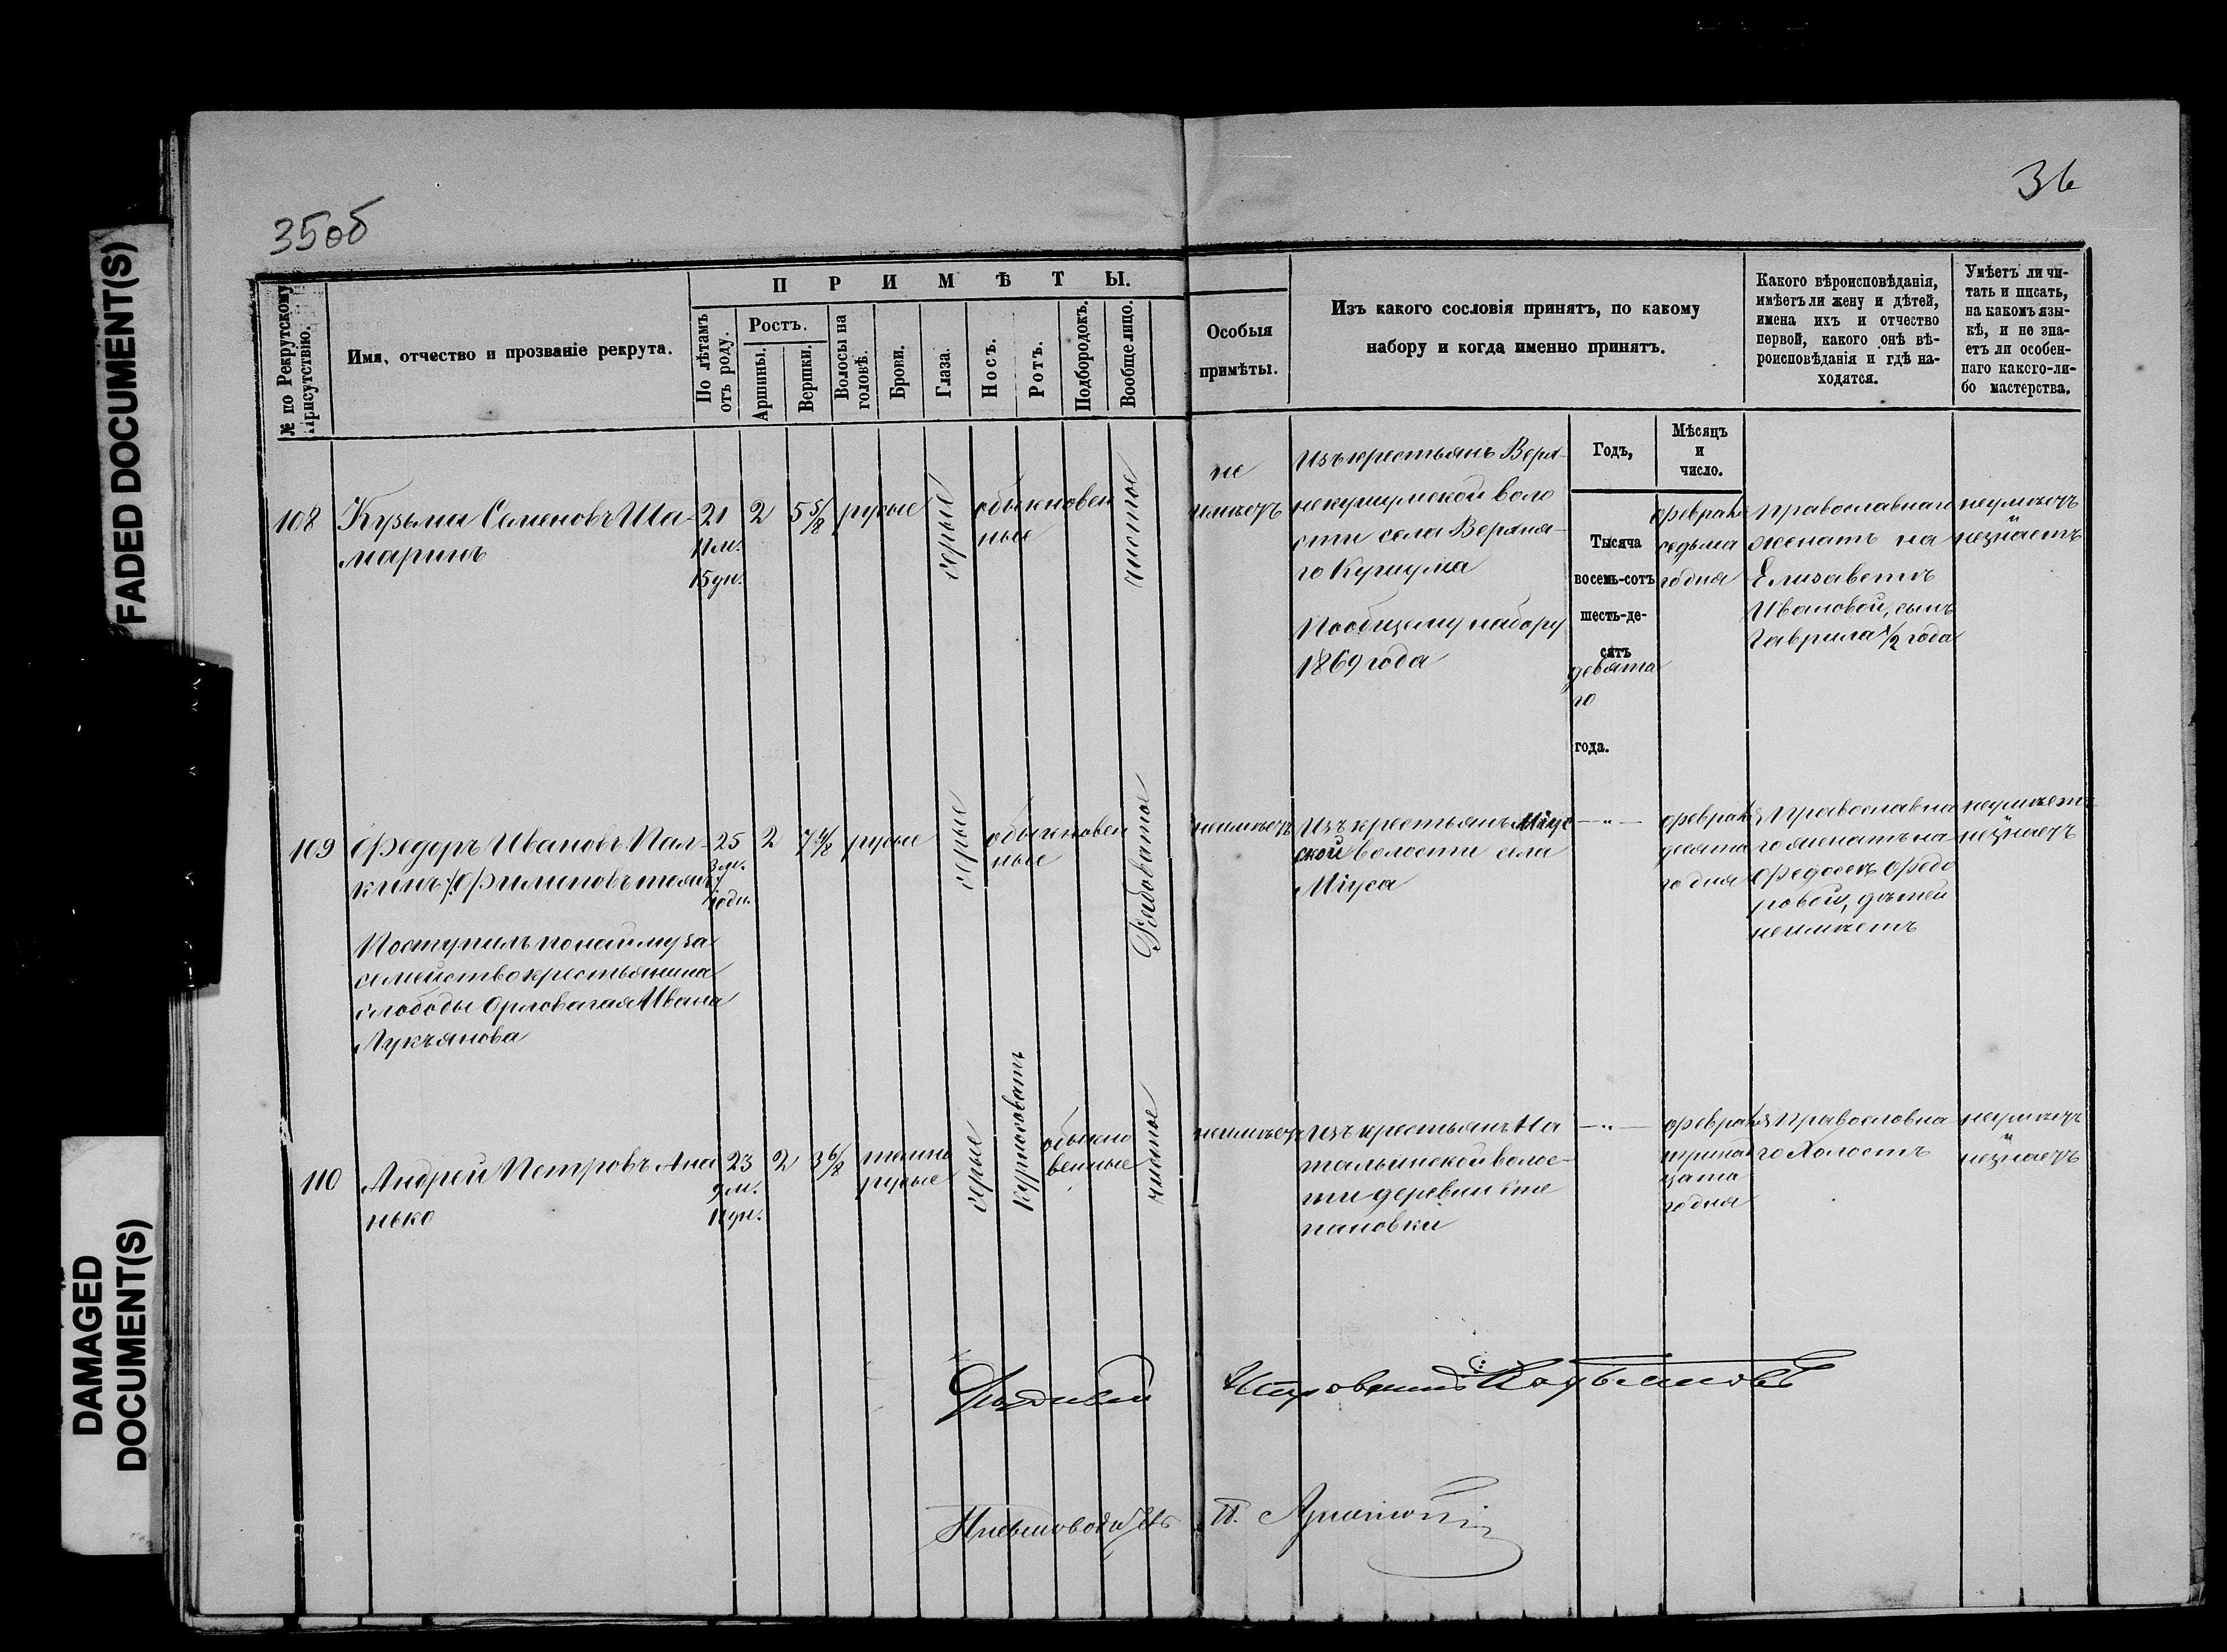 FADED DOCUMENT(S)
DAMAGED
DOCUMENT(S)
35об
36
№ по Рекрутскому
Присутствію.
Имя, отчество и прозваніе рекрута.
ПРИМѢТЫ.
По лѣтамъ
отъ роду.
Ростъ.
Аршины.
Вершки.
Волосы на
головѣ.
Брови.
Глаза.
Носъ.
Ротъ.
Подбородокъ.
Вообще лицо.
Особыя
примѣты.
Изъ какого сословія принятъ, по какому
набору и когда именно принятъ.
Какого вѣроисповѣданія,
имѣетъ ли жену и дѣтей,
имена ихъ и отчество
первой, какого онѣ вѣ-
роисповѣданія и гдѣ на-
ходятся.
Умѣетъ ли чи-
тать и писать,
на какомъ язы-
кѣ, и не зна-
етъ ли особен-
наго какого-ли-
бо мастерства.
Годъ,
Мѣсяцъ
и
число.
108
Кузьма Семеновъ Ша-
маринъ
21
11 м.
15 дн.
2
5 5/8
русые
сѣрые
обыкновен
ные
чистое
не
имѣетъ
Изъ крестьянъ Верх-
некушумской воло
сти села Верхня-
го Кушума
По общему набору
1869 года
Тысяча
восемь-сотъ
шесть-де-
сятъ
девята
го
года.
февраля
седьма
го дня
Православнаго
женатъ на
Елизаветѣ
Ивановой, сынъ
Гаврила 1/2 года
неумѣетъ
незнаетъ
109
Федоръ Ивановъ Пал-
кинъ /: Филиповъ тожъ:/
25
3 м.
2
русые
сѣрые
обыкновен
ные
Рябоватое
неимѣетъ
Изъ крестьянъ Міус
ской волости села
Міуса
— " —
февраля
десята
го дня
Православна
го женатъ на
Федосьѣ Федо
ровой, дѣтей
неимѣетъ
неумѣетъ
незнаетъ
Поступилъ по найму за
семейство крестьянина
слободы Орловагая Ивана
Лукъянова
110
Андрей Петровъ Ана
нько
23
9 м.
11 дн.
2
3 6/8
темно
русые
сѣрые
курносоватъ
обыкно
венные
чистое
неимѣетъ
Изъ крестьянъ На
тальинской волос-
ти деревни Сте
пановки
— " —
февраля
трина
цата
го дня
Православна
го Холостъ
неумѣетъ
незнаетъ
Письмоводитель
П.